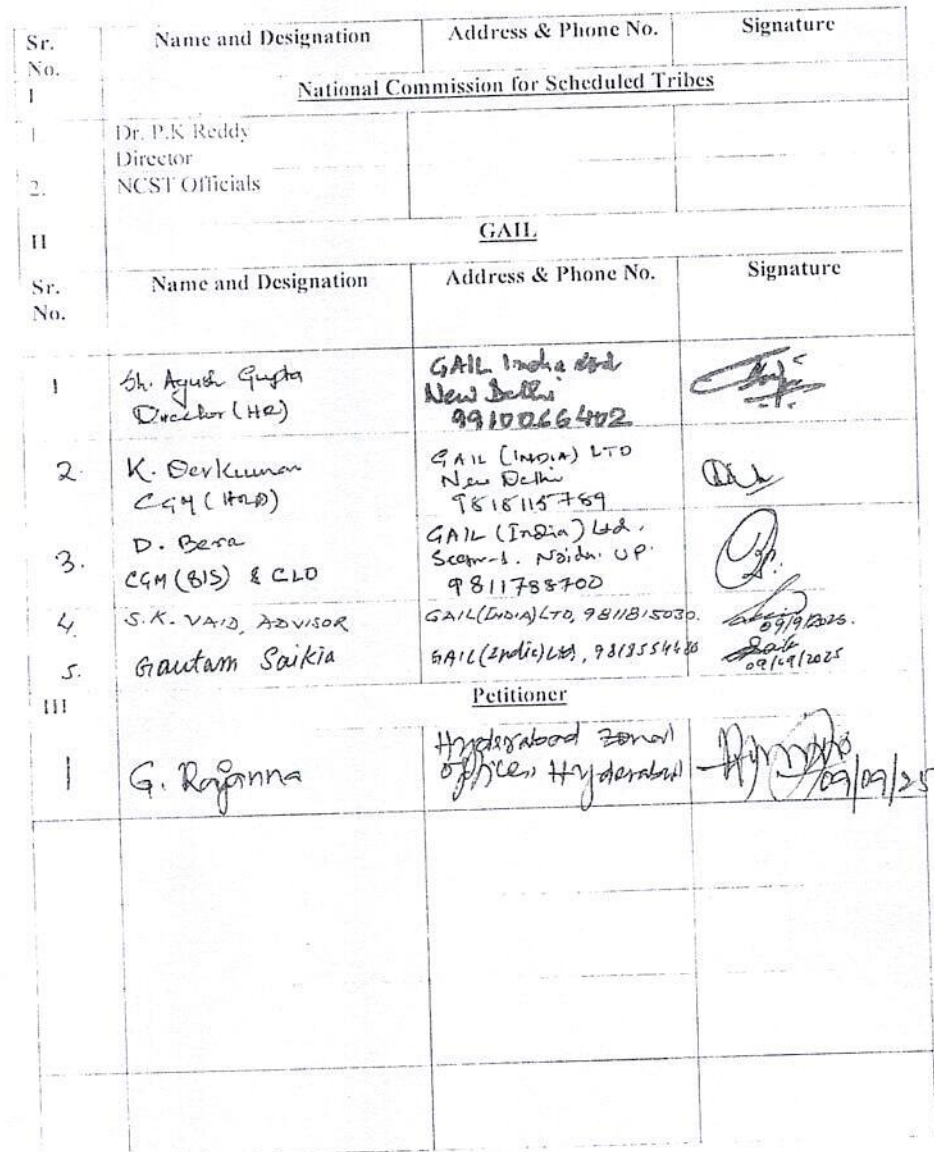 Sr. No. Name and Designation Address & Phone No. Signature
I National Commission for Scheduled Tribes
1. Dr. P.K Reddy
Director
2. NCST Officials
II GAIL
Sr. No. Name and Designation Address & Phone No. Signature
1 Sh. Ayush Gupta GAIL India Ltd
Director (HR) New Delhi
9910066402
2. K. Devkumar GAIL (INDIA) LTD
CGM (HRD) New Delhi
9818115789
3. D. Bera GAIL (India) Ltd.
CGM (BIS) & CLO Noida. UP.
9811788700
4. S.K. VAID, ADVISOR GAIL (INDIA) LTD, 9811815030. 09/9/2025.
5. Gautam Saikia GAIL (India) Ltd, 09/09/2025
III Petitioner
1 G. Rajanna Hyderabad Zonal
Office, Hyderabad 09/09/25